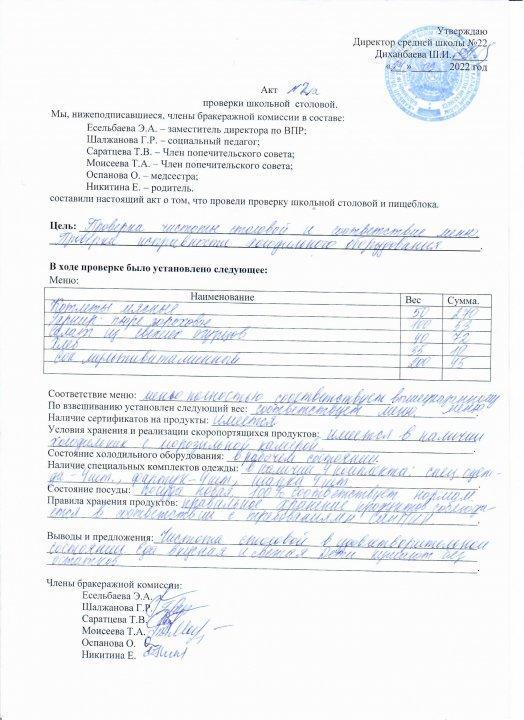 Утверждаю
Директор средней школы №22
Диханбаева Ш.И.
« » 2022 год
Акт №2а
проверки школьной столовой.
Мы, нижеподписавшиеся, члены бракеражной комиссии в составе:
Есельбаева Э.А. – заместитель директора по ВПР;
Шалжанова Г.Р. – социальный педагог;
Саратцева Т.В. – Член попечительского совета;
Моисеева Т.А. – Член попечительского совета;
Оспанова О. – медсестра;
Никитина Е. – родитель.
составили настоящий акт о том, что провели проверку школьной столовой и пищеблока.
Цель: Проверка чистоты столовой и соответствие меню.
Проверка исправности холодильного оборудования
В ходе проверке было установлено следующее:
Меню:
Наименование Вес Сумма.
Котлеты мясные 50 240
Гарнир: пюре гороховое 100 53
Салат из свежих огурцов 40 72
Хлеб 35 10
Сок мультивитаминный 200 95
Соответствие меню: меню полностью соответствует
По взвешиванию установлен следующий вес: соответствует меню
Наличие сертификатов на продукты: имеется
Условия хранения и реализации скоропортящихся продуктов: имеется в наличии
холодильник с морозильной камерой
Состояние холодильного оборудования: в рабочем состоянии
Наличие специальных комплектов одежды: в наличии 4 комплекта: спец. одеж-
да-4шт., фартук-4шт, шапка 4шт
Состояние посуды: посуда новая, 100% соответствует нормам
Правила хранения продуктов: правильное хранение продуктов
в соответствии с требованиями СанПиН
Выводы и предложения: Чистота столовой в удовлетворительном
состоянии, еда вкусная и свежая. Дети кушают без
остатков
Члены бракеражной комиссии:
Есельбаева Э.А.
Шалжанова Г.Р.
Саратцева Т.В.
Моисеева Т.А.
Оспанова О.
Никитина Е.